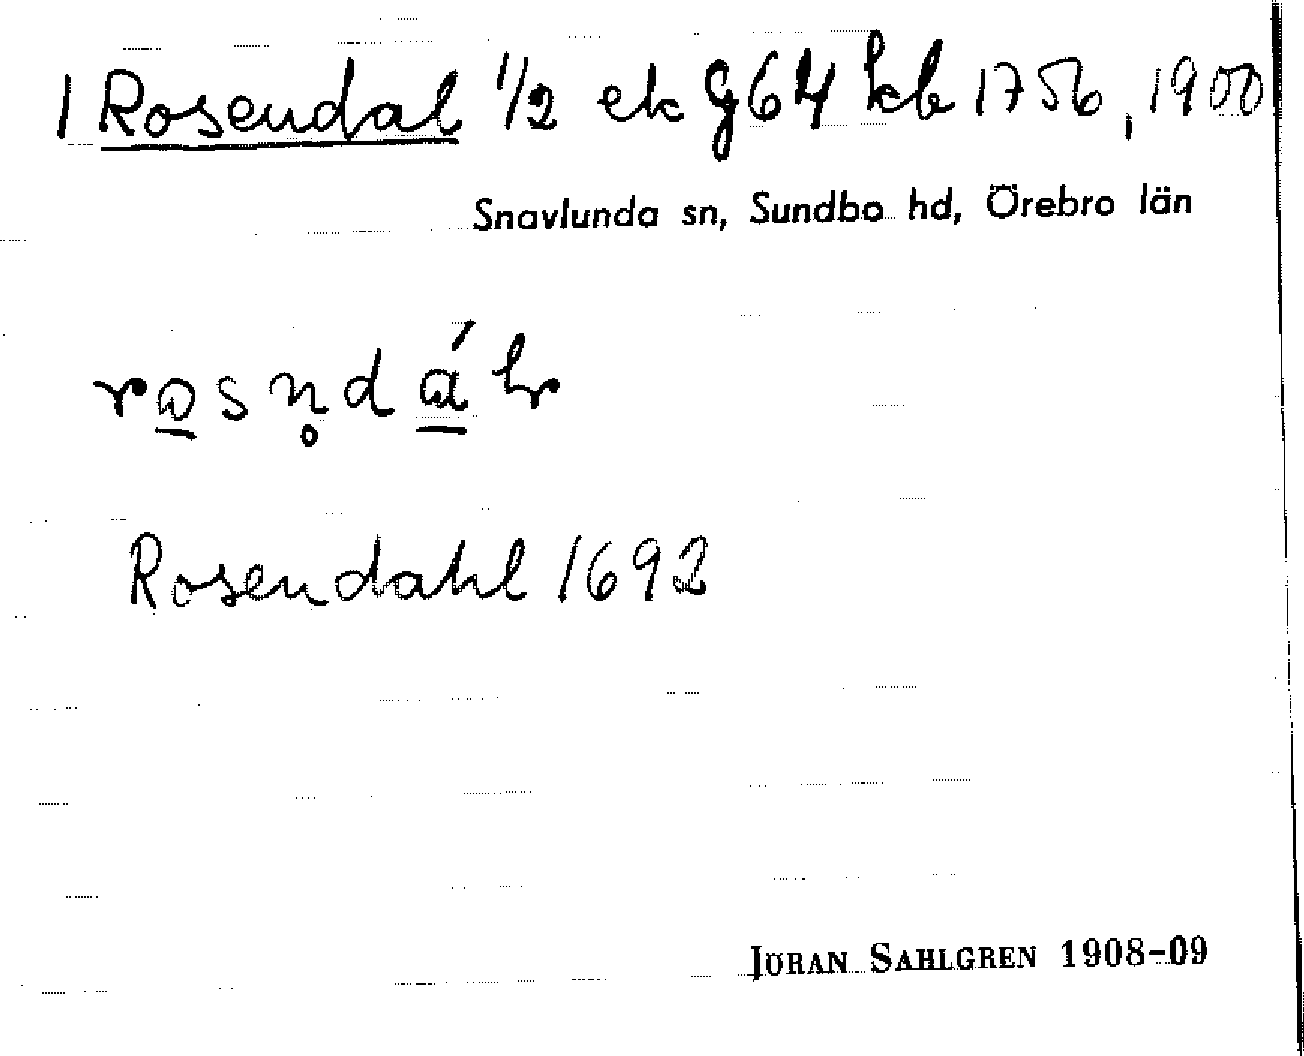 1 Rosendal 1/2 ek g64 kb 1756, 1900
Snavlunda sn, Sundbo hd, Örebro län
Rosendahl 1692
JÖRAN SAHLGREN 1908-09